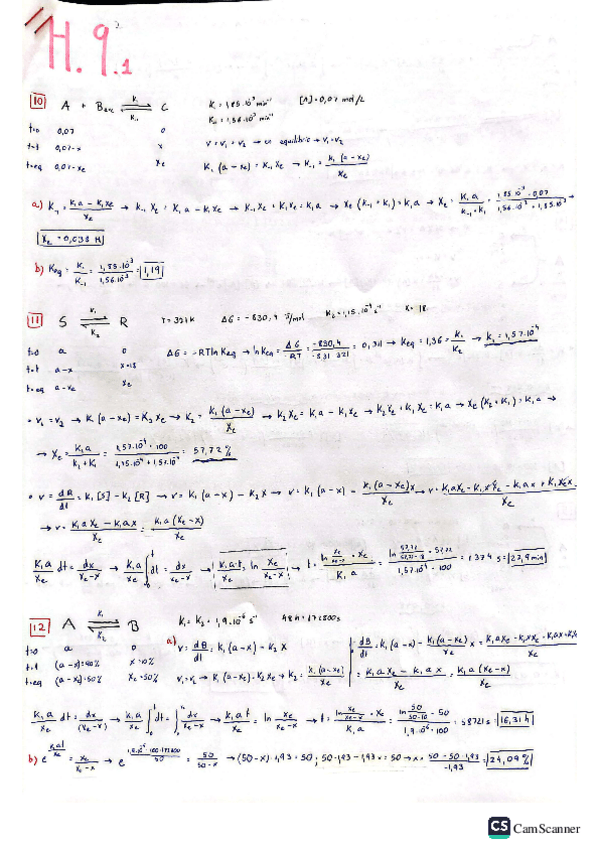 H. 9.1
10 A + B exc ⇌ C K₁ = 1,85·10⁻³ min⁻¹ [A] = 0,07 mol/L
K₋₁ = 1,56·10⁻³ min⁻¹
t=0 0,07 0
t=t 0,07-x x v = v₁ - v₂ → equilibrio → v₁ = v₂
t=eq 0,07-xe xe K₁ (a-xe) = K₋₁ xe → K₋₁ = K₁ (a-xe) / xe
a) K₋₁ = K₁a - K₁xe / xe → K₋₁ xe = K₁a - K₁xe → K₋₁ xe + K₁xe = K₁a → xe (K₋₁ + K₁) = K₁a → xe = K₁a / K₋₁ + K₁ = 1,85·10⁻³ · 0,07 / 1,56·10⁻³ + 1,85·10⁻³ →
xe = 0,038 M
b) Keq = K₁ / K₋₁ = 1,85·10⁻³ / 1,56·10⁻³ = 1,19
11 S ⇌ R T = 321 K ΔG = -830,4 J/mol K₂ = 1,15·10⁻⁴ s⁻¹ X = 18
t=0 a 0
t=t a-x x=18 ΔG = -RT ln Keq → ln Keq = ΔG / -RT = -830,4 / -8,31·321 = 0,311 → Keq = 1,36 = K₁ / K₂ → K₁ = 1,57·10⁻⁴
t=eq a-xe xe
• v₁ = v₂ → K₁ (a-xe) = K₂ xe → K₂ = K₁ (a-xe) / xe → K₂ xe = K₁a - K₁xe → K₂xe + K₁xe = K₁a → xe (K₂ + K₁) = K₁a →
→ xe = K₁a / K₁ + K₂ = 1,57·10⁻⁴ · 100 / 1,15·10⁻⁴ + 1,57·10⁻⁴ = 57,72 %
• v = dR / dt = K₁ [S] - K₂ [R] → v = K₁ (a-x) - K₂ x → v = K₁ (a-x) - K₁ (a-xe) x / xe → v = K₁axe - K₁xxe - K₁ax + K₁xex / xe
→ v = K₁axe - K₁ax / xe = K₁a (xe-x) / xe
K₁a / xe dt = dx / xe-x → K₁a / xe ∫ dt = ∫ dx / xe-x → K₁a·t / xe = ln xe / xe-x → t = ln xe / xe-x · xe / K₁a = ln 57,72 / 57,72-18 · 57,72 / 1,57·10⁻⁴ · 100 = 1374 s = 22,9 min
12 A ⇌ B K₁ = K₂ = 1,9·10⁻⁶ s⁻¹ 48 h = 172800 s
t=0 a 0 a) v = dB / dt = K₁ (a-x) - K₂ x dB / dt = K₁ (a-x) - K₁ (a-xe) x / xe = K₁axe - K₁xxe - K₁ax + K₁xex / xe
t=t (a-x)=90% x=10%
t=eq (a-xe)=50% xe=50% v₁=v₂ → K₁ (a-xe) = K₂ xe → K₂ = K₁ (a-xe) / xe = K₁axe - K₁ax / xe = K₁a (xe-x) / xe
K₁a / xe dt = dx / (xe-x) → K₁a / xe ∫ dt = ∫ dx / xe-x → K₁a t / xe = ln xe / xe-x → t = ln xe / xe-x · xe / K₁a = ln 50 / 50-10 · 50 / 1,9·10⁻⁶ · 100 = 58721 s = 16,31 h
b) e^(K₁at / xe) = xe / xe-x → e^(1,9·10⁻⁶ · 100 · 172800 / 50) = 50 / 50-x → (50-x) · 1,93 = 50 ; 50·1,93 - 1,93x = 50 → x = 50 - 50·1,93 / -1,93 = 24,09 %
CS CamScanner